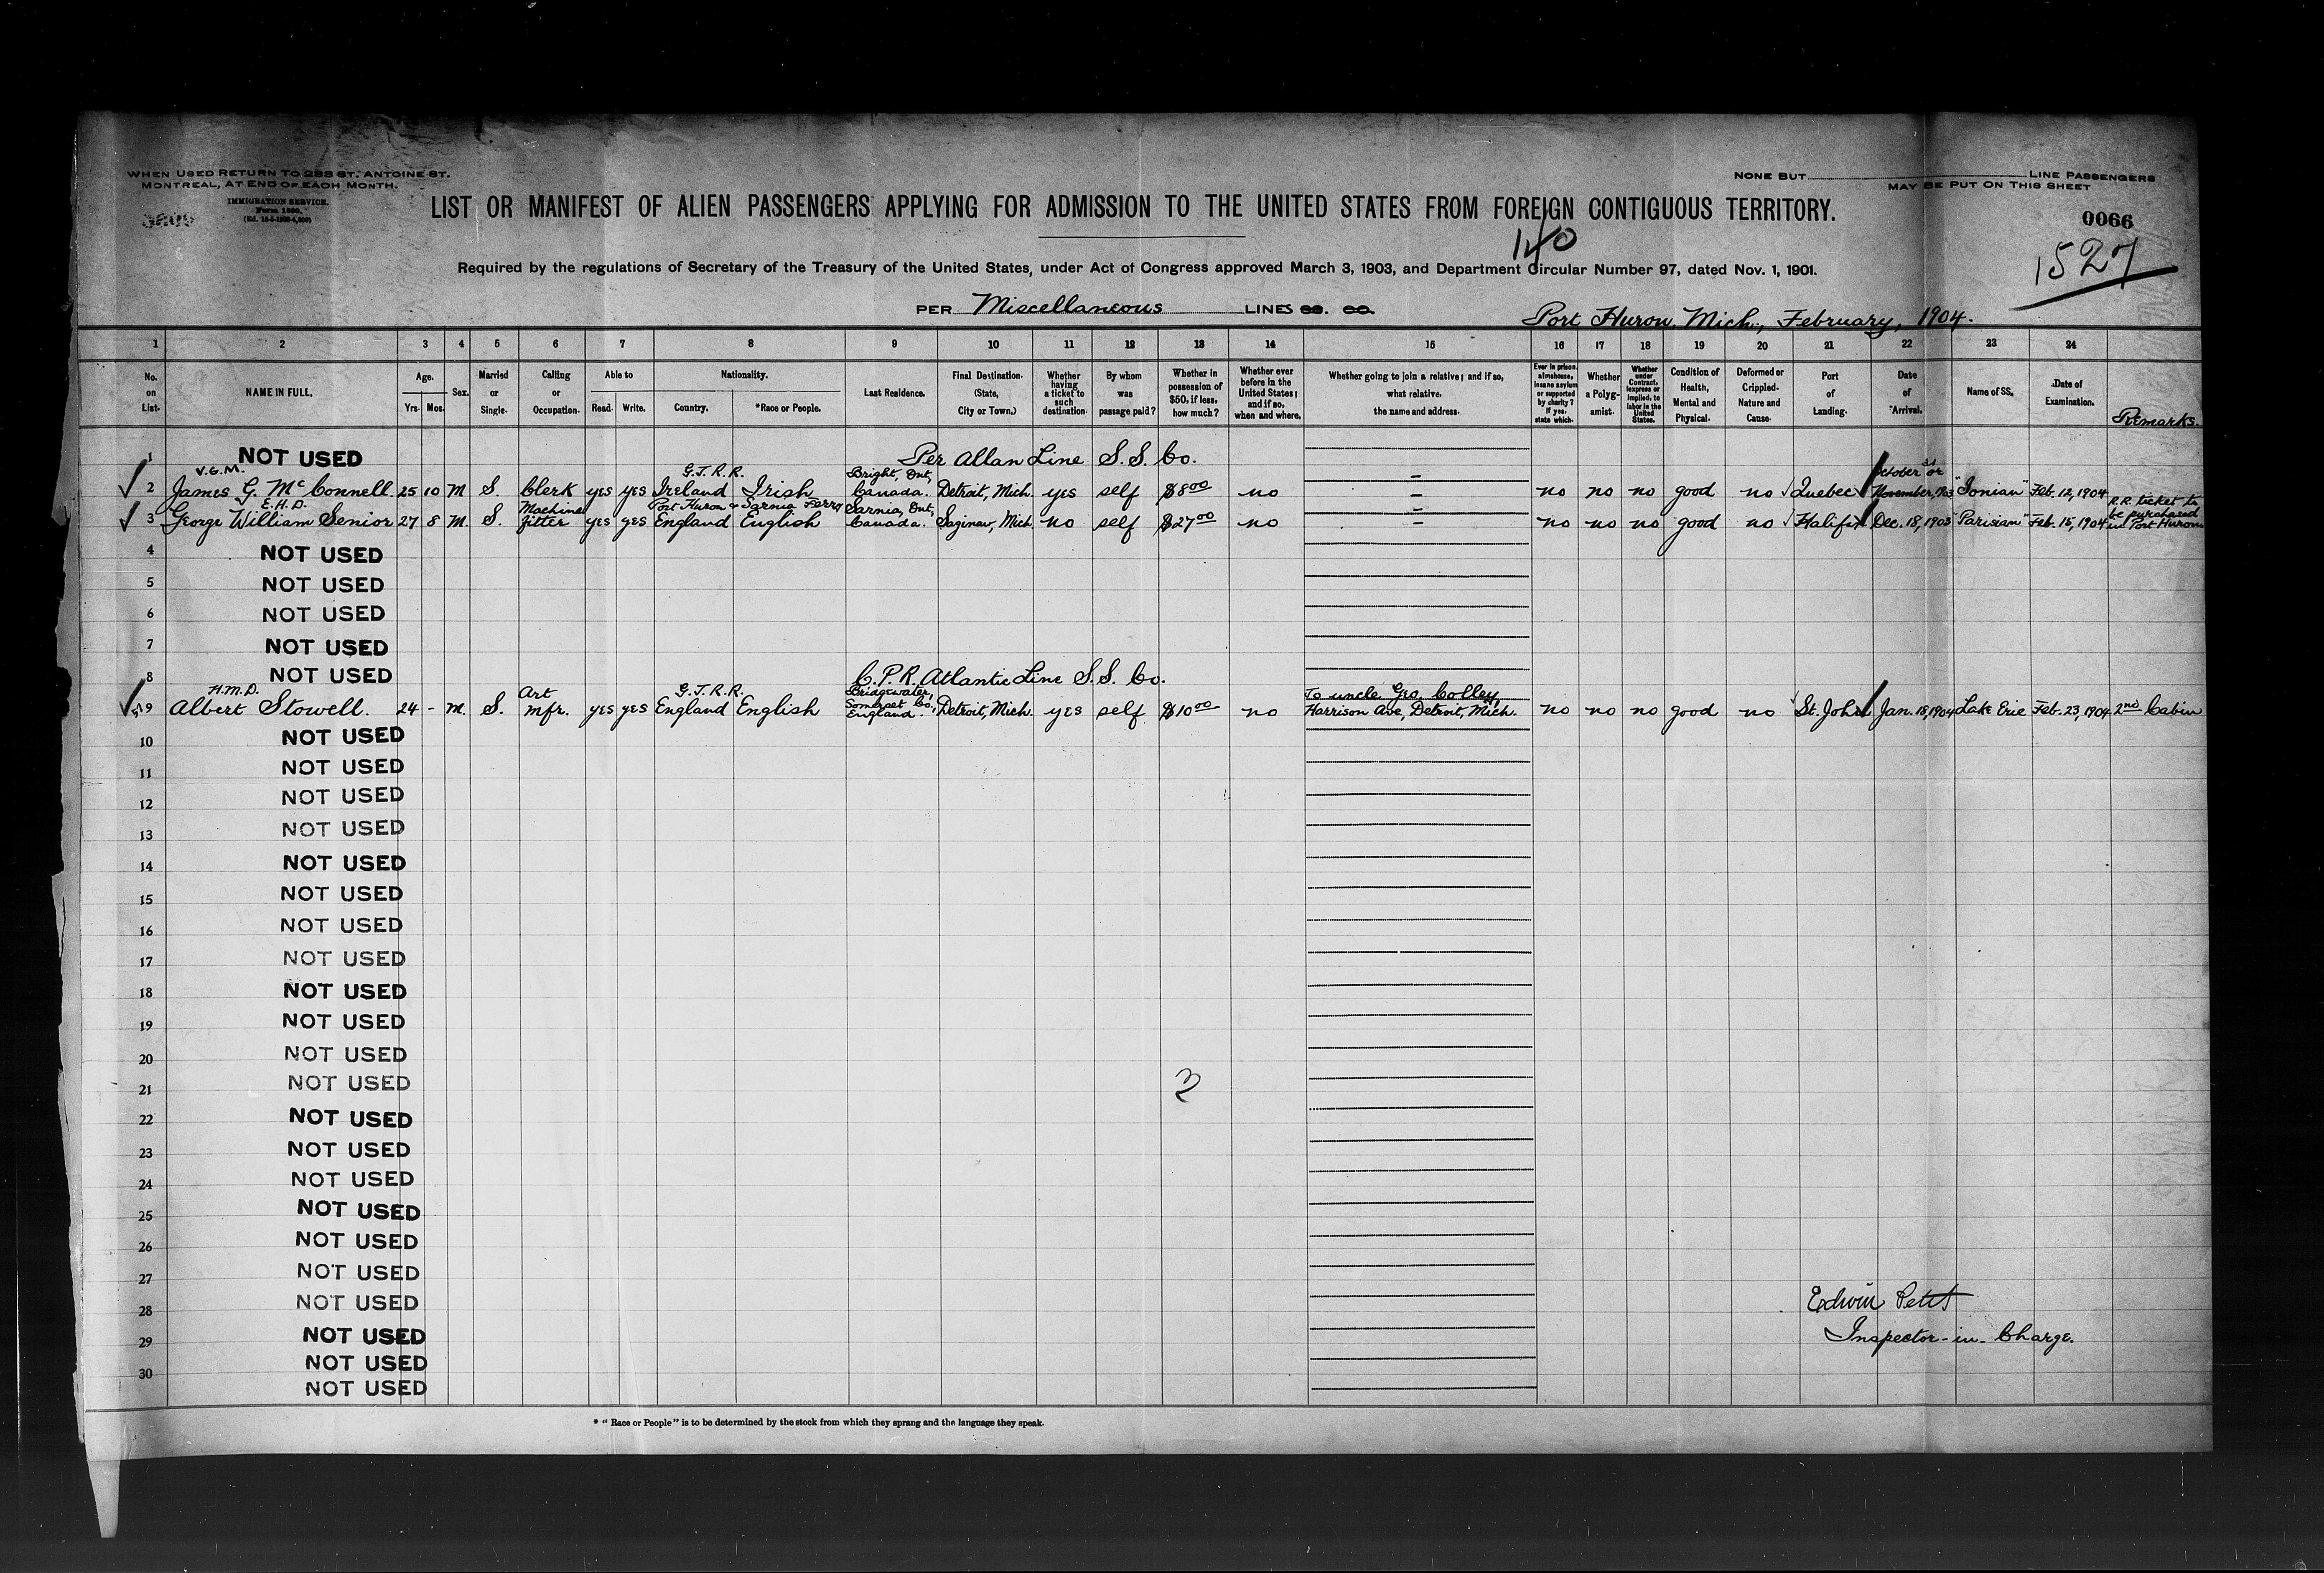 WHEN USED RETURN TO 233 ST. ANTOINE ST.
MONTREAL, AT END OF EACH MONTH.
IMMIGRATION SERVICE.
NONE BUT LINE PASSENGERS
MAY BE PUT ON THIS SHEET
LIST OR MANIFEST OF ALIEN PASSENGERS APPLYING FOR ADMISSION TO THE UNITED STATES FROM FOREIGN CONTIGUOUS TERRITORY.
0066
140
1527
Required by the regulations of Secretary of the Treasury of the United States, under Act of Congress approved March 3, 1903, and Department Circular Number 97, dated Nov. 1, 1901.
PER Miscellaneous LINES
Port Huron, Mich., February, 1904.
1 2 3 4 5 6 7 8 9 10 11 12 13 14 15 16 17 18 19 20 21 22 23 24
No. on List.
NAME IN FULL.
Age. Yrs. Mos.
Sex.
Married or Single.
Calling or Occupation.
Able to Read. Write.
Nationality. Country. *Race or People.
Last Residence.
Final Destination. (State, City or Town.)
Whether having a ticket to such destination.
By whom was passage paid?
Whether in possession of $50, if less, how much?
Whether ever before in the United States; and if so, when and where.
Whether going to join a relative; and if so, what relative, the name and address.
Ever in prison, almshouse, insane asylum or supported by charity? If yes, state which.
Whether a Polygamist.
Whether under Contract, express or implied, to labor in the United States.
Condition of Health, Mental and Physical.
Deformed or Crippled. Nature and Cause.
Port of Landing.
Date of Arrival.
Name of SS.
Date of Examination.
Remarks.
1 NOT USED Per Allan Line S. S. Co.
V.G.M. G.T.R.R. Bright, Ont, October 31 or
2 James G. McConnell 25 10 M S. Clerk yes yes Ireland Irish Canada. Detroit, Mich. yes self $8 00 no – no no no good no Quebec November, 1903 "Ionian" Feb. 12, 1904
E.H.D. Machine Port Huron & Sarnia Ferry Sarnia, Ont, R.R. ticket to be purchased in Port Huron
3 George William Senior 27 8 M. S. fitter yes yes England English Canada. Saginaw, Mich. no self $27 00 no – no no no good no Halifax Dec. 18, 1903 "Parisian" Feb. 15, 1904
4 NOT USED
5 NOT USED
6 NOT USED
7 NOT USED
8 NOT USED C.P.R. Atlantic Line S. S. Co.
H.M.D. Art G.T.R.R. Bridgewater, Somerset Co., To uncle Geo. Colley,
9 Albert Stowell. 24 - M. S. mfr. yes yes England English England. Detroit, Mich. yes self $10 00 no Harrison Ave, Detroit, Mich. no no no good no St. John Jan. 18, 1904 Lake Erie Feb. 23, 1904 2nd Cabin
NOT USED
10 NOT USED
11 NOT USED
12 NOT USED
13 NOT USED
14 NOT USED
15 NOT USED
16 NOT USED
17 NOT USED
18 NOT USED
19 NOT USED
20 NOT USED
21 NOT USED
22 NOT USED
23 NOT USED
24 NOT USED
25 NOT USED
26 NOT USED
27 NOT USED
28 NOT USED
29 NOT USED
30 NOT USED
3
Edwin Petit
Inspector-in-Charge.
* "Race or People" is to be determined by the stock from which they sprang and the language they speak.